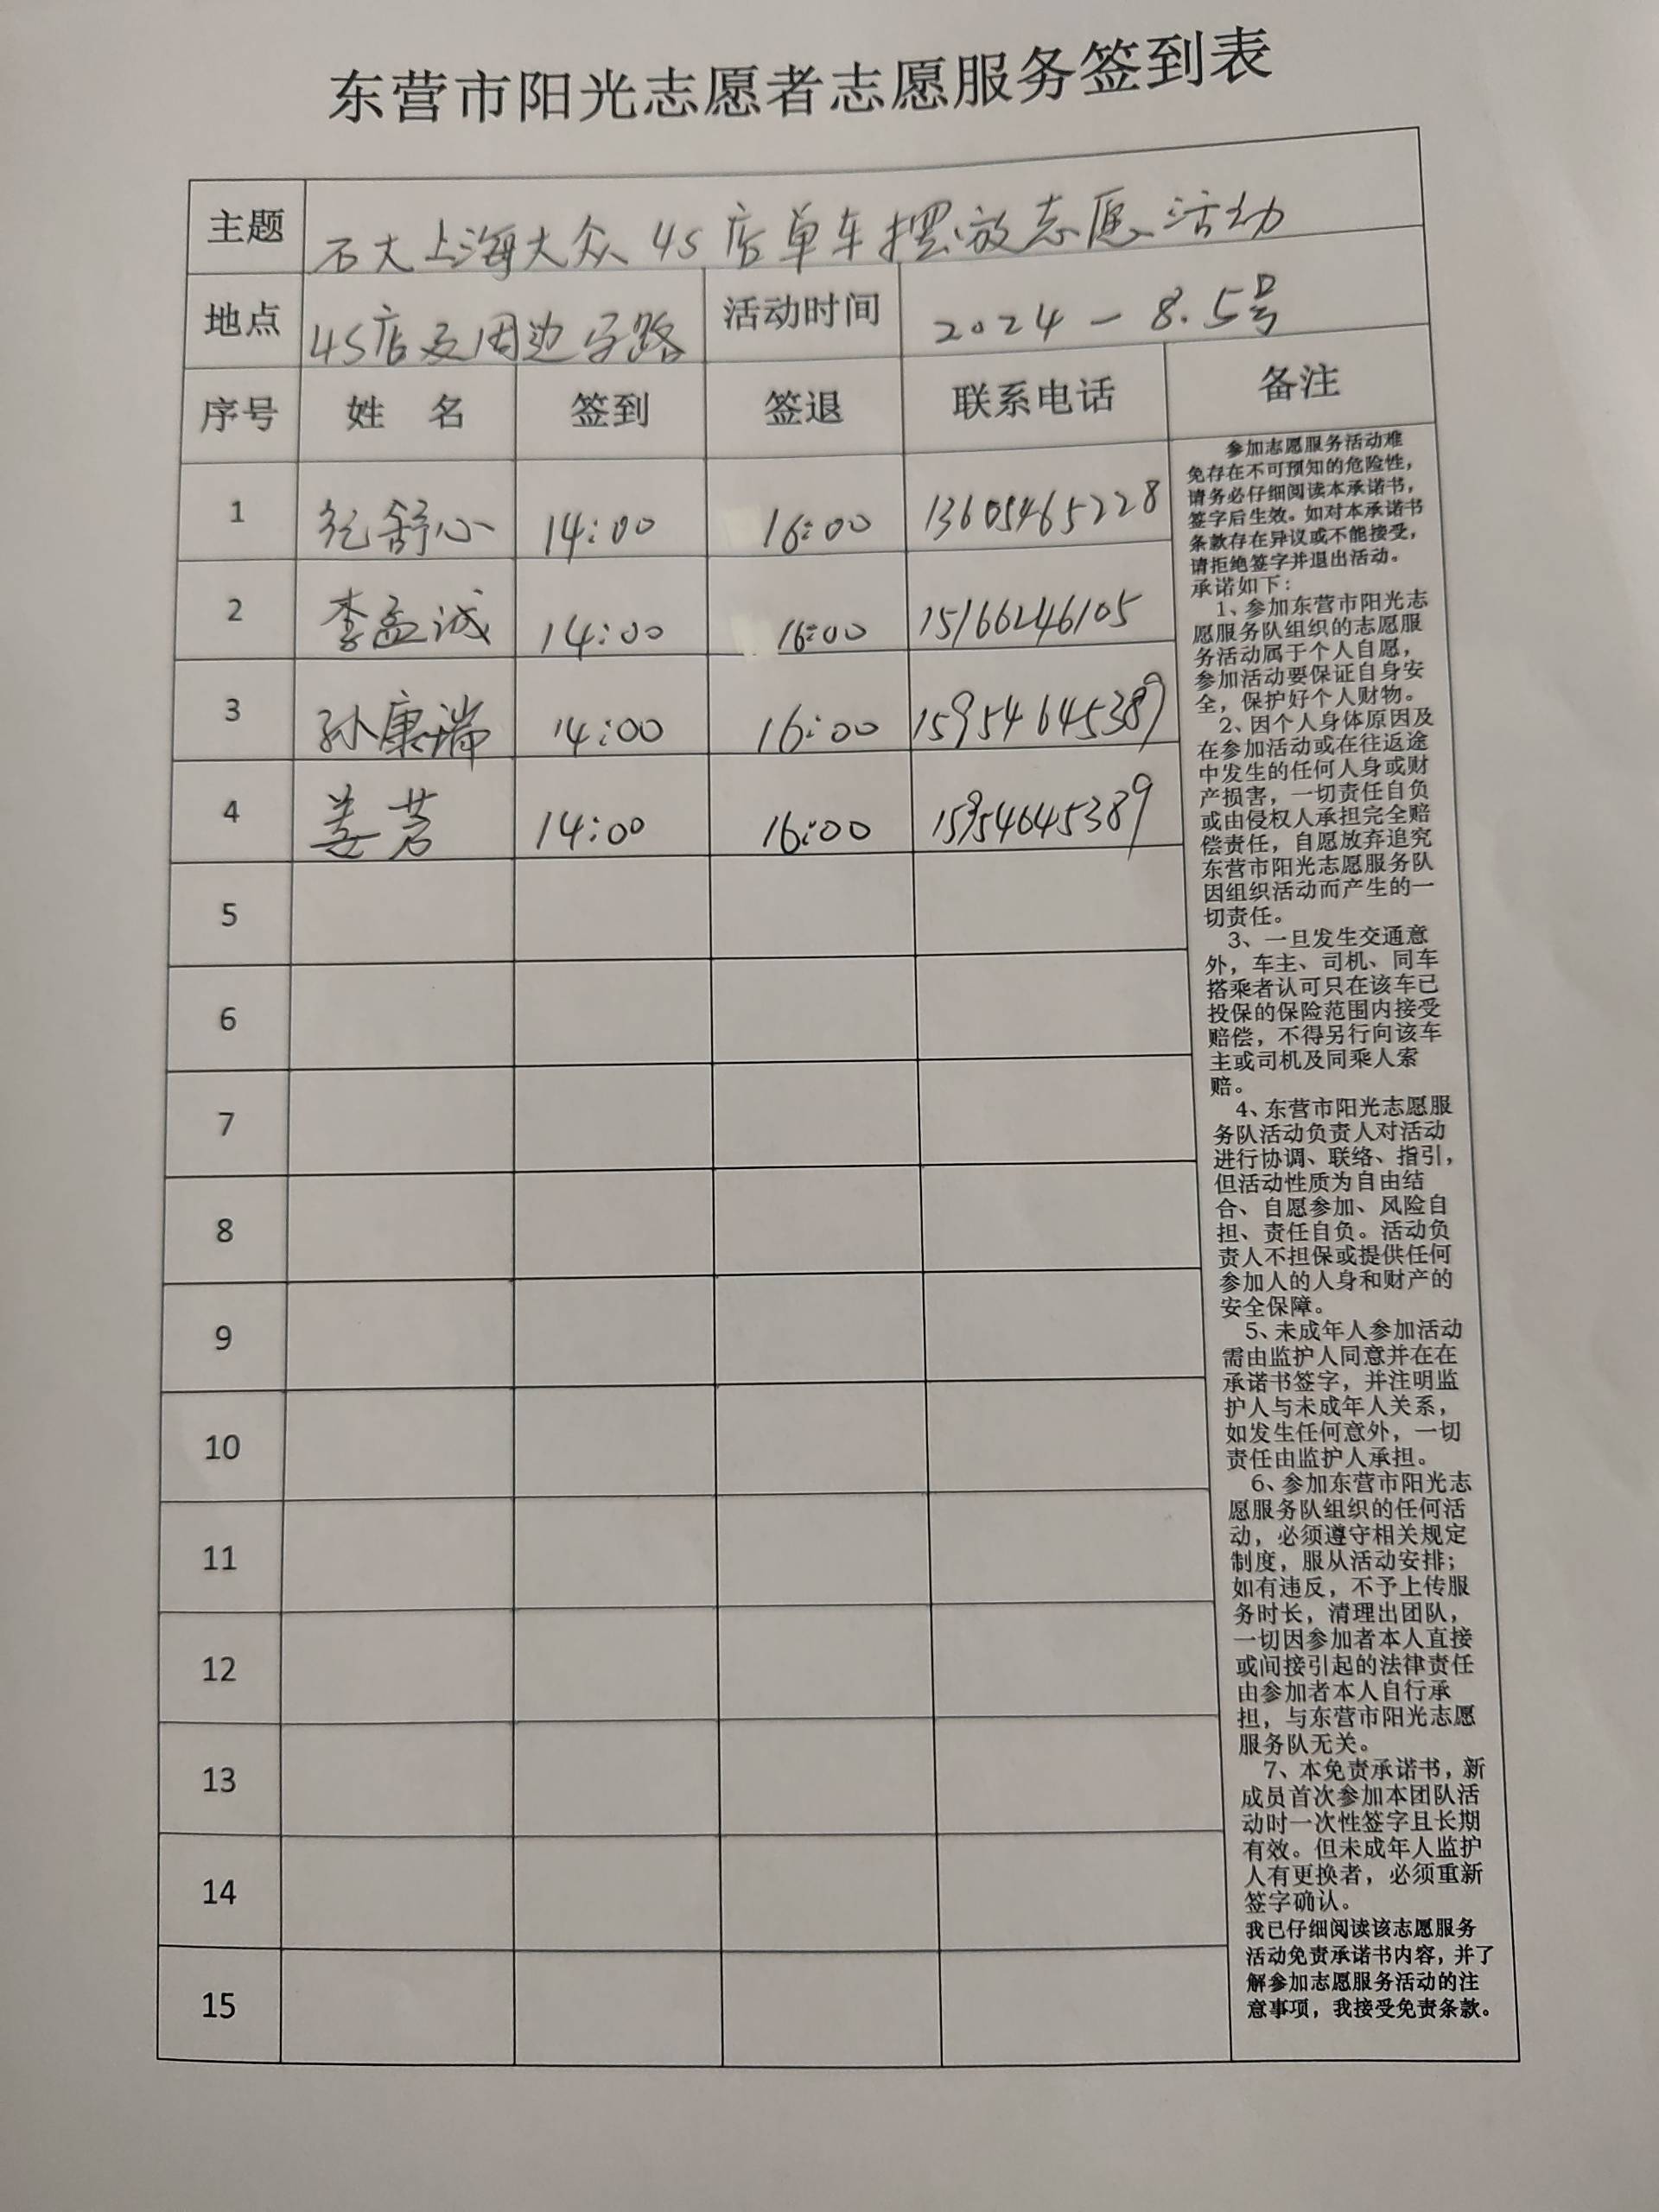 东营市阳光志愿者志愿服务签到表
主题 石大上海大众4S店单车摆放志愿活动
地点 4S店及周边马路 活动时间 2024-8.5号
序号 姓 名 签到 签退 联系电话 备注
1 舒心 14:00 16:00 13605465228
2 李孟诚 14:00 16:00 15166246105
3 孙康瑞 14:00 16:00 15954645389
4 姜茗 14:00 16:00 15954645389
5
6
7
8
9
10
11
12
13
14
15
参加志愿服务活动难
免存在不可预知的危险性，
请务必仔细阅读本承诺书，
签字后生效。如对本承诺书
条款存在异议或不能接受，
请拒绝签字并退出活动。
承诺如下：
1、参加东营市阳光志
愿服务队组织的志愿服
务活动属于个人自愿，
参加活动要保证自身安
全，保护好个人财物。
2、因个人身体原因及
在参加活动或在往返途
中发生的任何人身或财
产损害，一切责任自负
或由侵权人承担完全赔
偿责任，自愿放弃追究
东营市阳光志愿服务队
因组织活动而产生的一
切责任。
3、一旦发生交通意
外，车主、司机、同车
搭乘者认可只在该车已
投保的保险范围内接受
赔偿，不得另行向该车
主或司机及同乘人索
赔。
4、东营市阳光志愿服
务队活动负责人对活动
进行协调、联络、指引，
但活动性质为自由结
合、自愿参加、风险自
担、责任自负。活动负
责人不担保或提供任何
参加人的人身和财产的
安全保障。
5、未成年人参加活动
需由监护人同意并在在
承诺书签字，并注明监
护人与未成年人关系，
如发生任何意外，一切
责任由监护人承担。
6、参加东营市阳光志
愿服务队组织的任何活
动，必须遵守相关规定
制度，服从活动安排；
如有违反，不予上传服
务时长，清理出团队，
一切因参加者本人直接
或间接引起的法律责任
由参加者本人自行承
担，与东营市阳光志愿
服务队无关。
7、本免责承诺书，新
成员首次参加本团队活
动时一次性签字且长期
有效。但未成年人监护
人有更换者，必须重新
签字确认。
我已仔细阅读该志愿服务
活动免责承诺书内容，并了
解参加志愿服务活动的注
意事项，我接受免责条款。